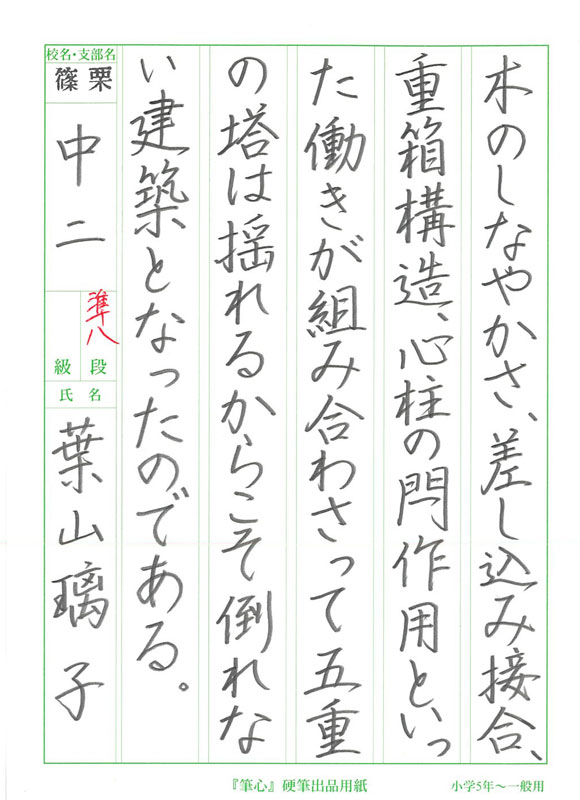 木のしなやかさ、差し込み接合、
重箱構造、心柱の閂作用といっ
た働きが組み合わさって五重
の塔は揺れるからこそ倒れな
い建築となったのである。
校名・支部名
篠栗
中二
準八
段級
氏名
葉山璃子
『筆心』硬筆出品用紙
小学5年〜一般用